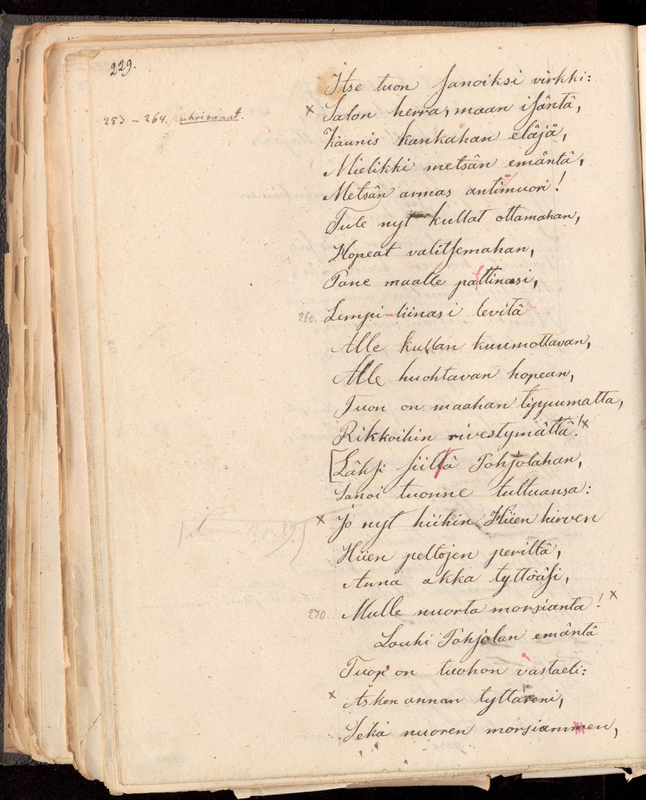 229.
Itse tuon sanoiksi virkki:
253 – 264. uhrisanat.
× Salon herra, maan isäntä,
Kaunis kankahan eläjä,
Mielikki metsän emäntä,
Metsän armas antimuori!
Tule nyt kullat ottamahan,
Hopeat valitsemahan,
Pane maalle palttinasi,
260. Lempi-liinasi levitä
Alle kullan kuumottavan,
Alle huohtavan hopean,
Tuon on maahan tippumatta,
Rikkoihin rivestymättä! ×
[Läksi siitä Pohjolahan,
Sanoi tuonne tultuansa:
× Jo nyt hiihin Hiien hirven
Hiien peltojen periltä,
Anna akka tyttöäsi,
270. Mulle nuorta morsianta! ×
Louhi Pohjolan emäntä
Tuop' on tuohon vastaeli:
× Äsken annan tyttäreni,
Sekä nuoren morsiammen,